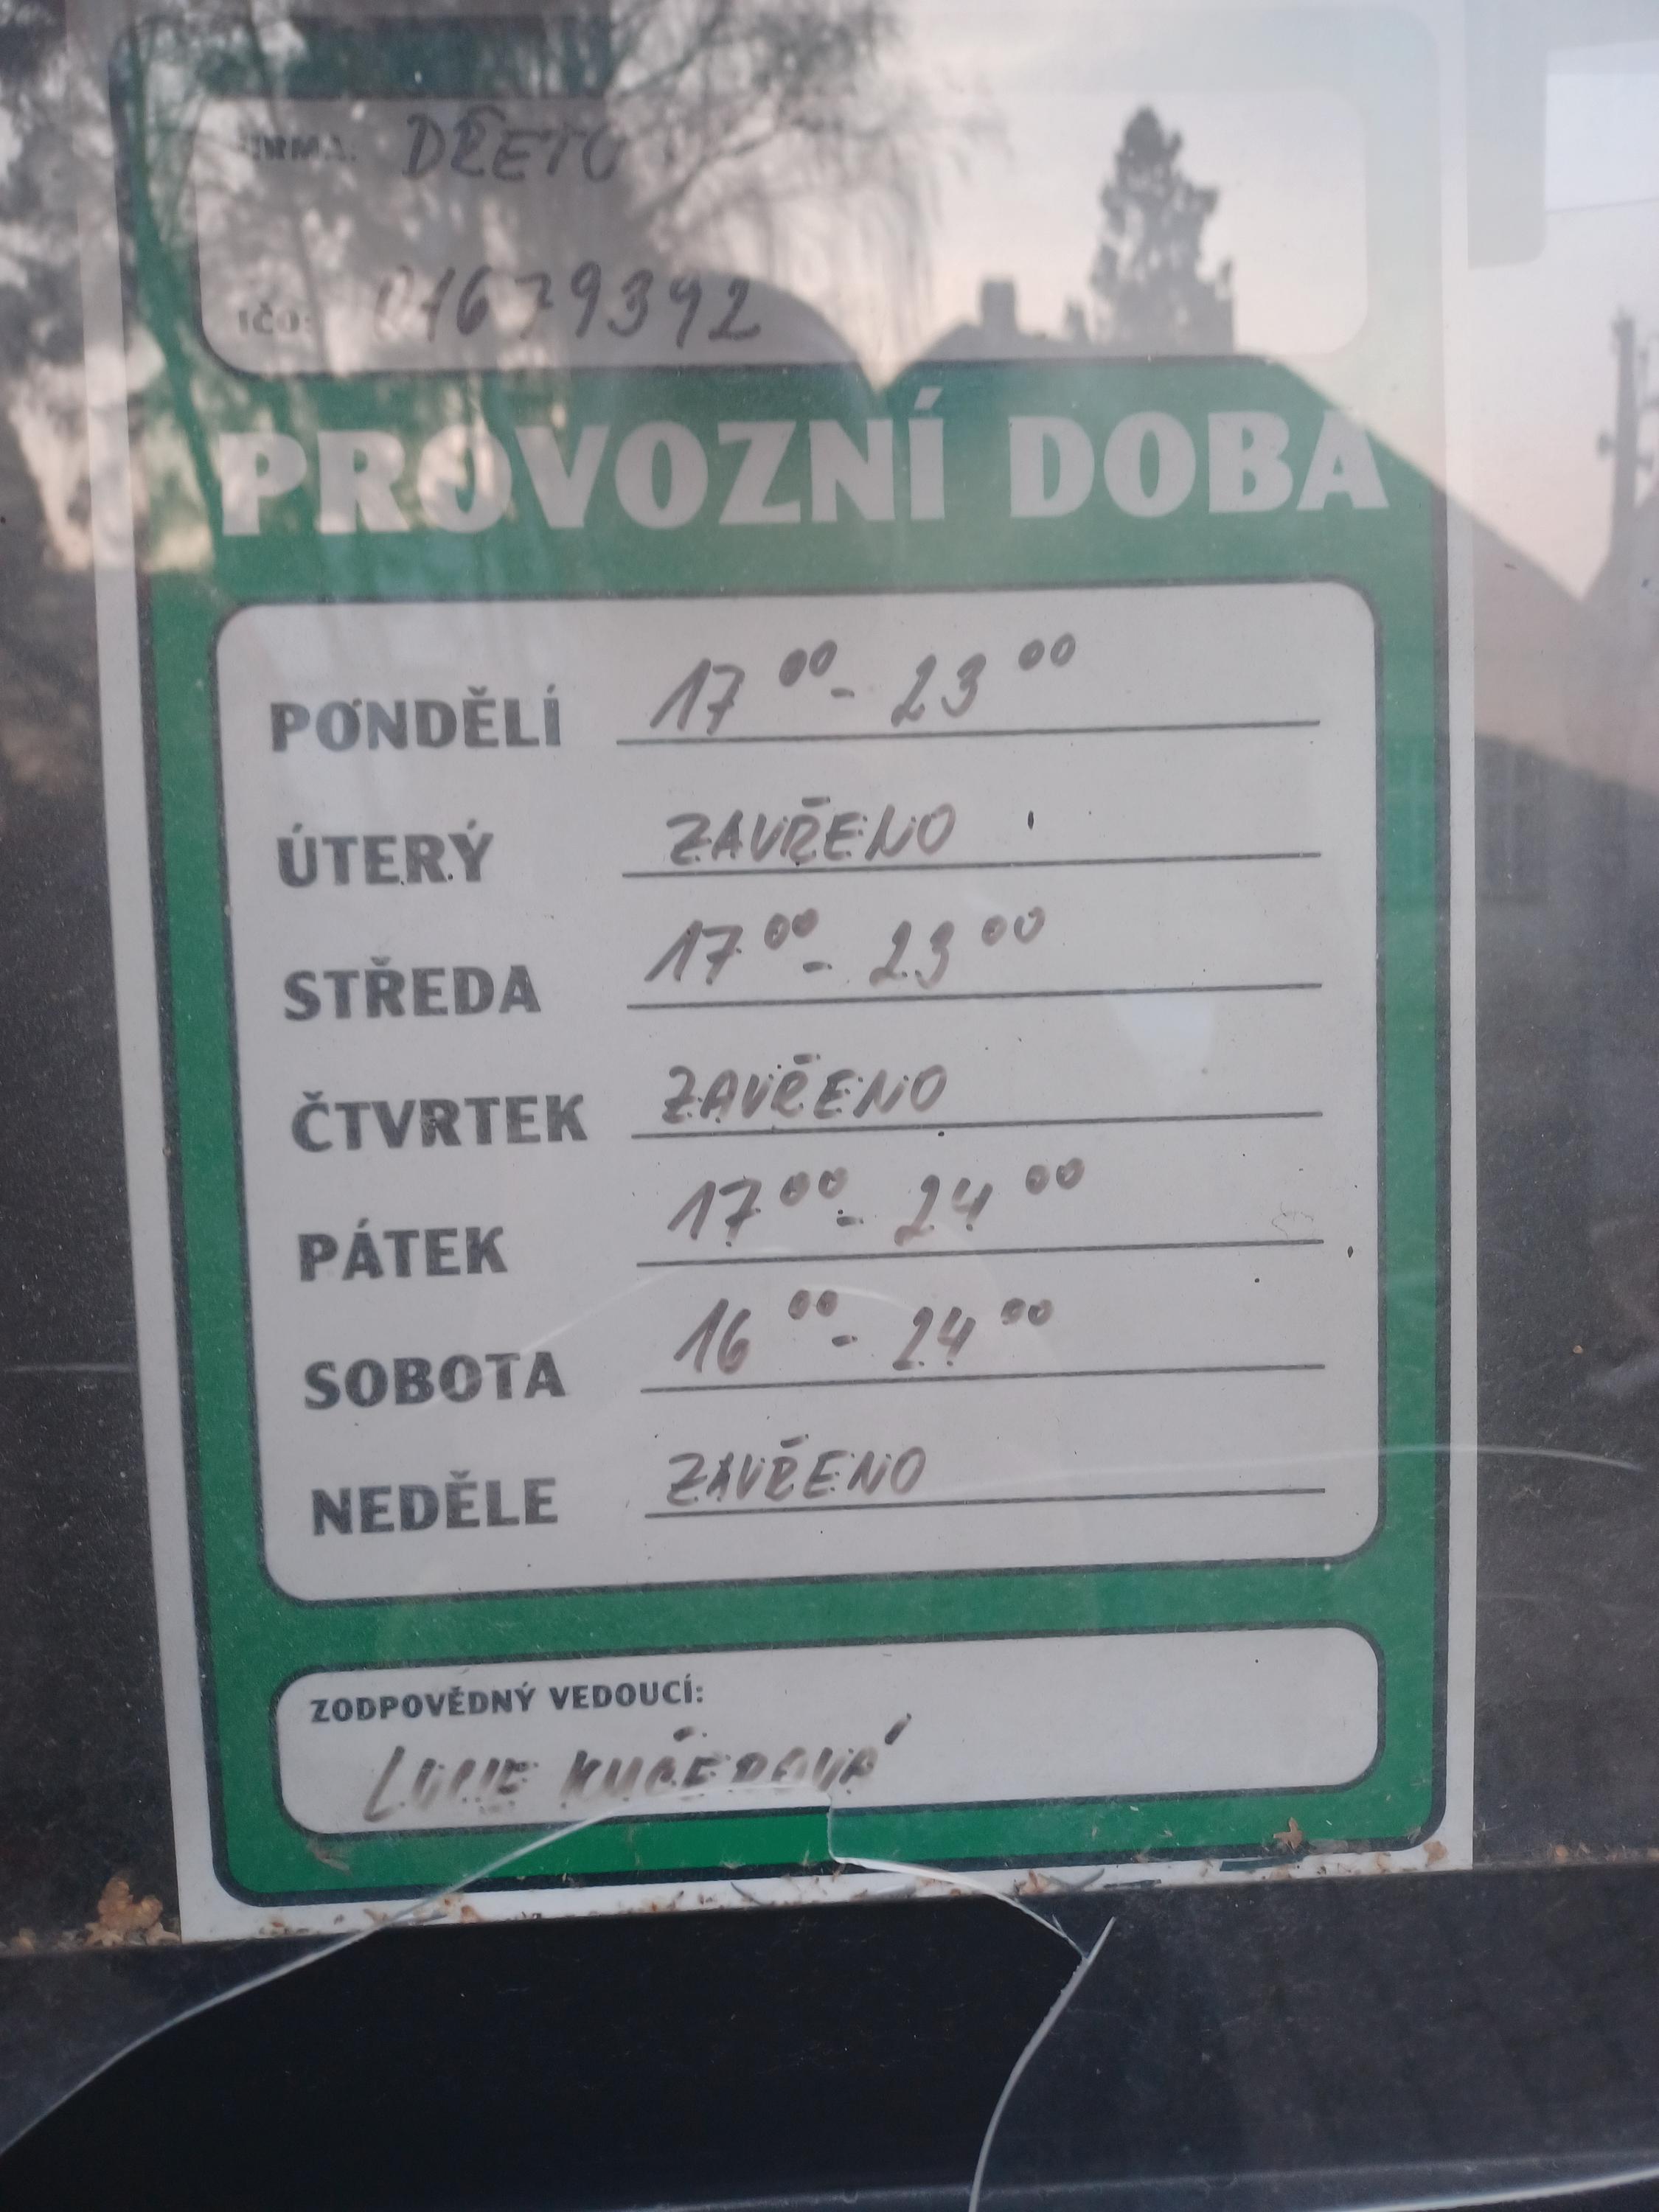 FIRMA: DŘETO
IČO: 01679392
PROVOZNÍ DOBA
PONDĚLÍ 17 00 - 23 00
ÚTERÝ ZAVŘENO
STŘEDA 17 00 - 23 00
ČTVRTEK ZAVŘENO
PÁTEK 17 00 - 24 00
SOBOTA 16 00 - 24 00
NEDĚLE ZAVŘENO
ZODPOVĚDNÝ VEDOUCÍ:
LUCIE KUČEROVÁ